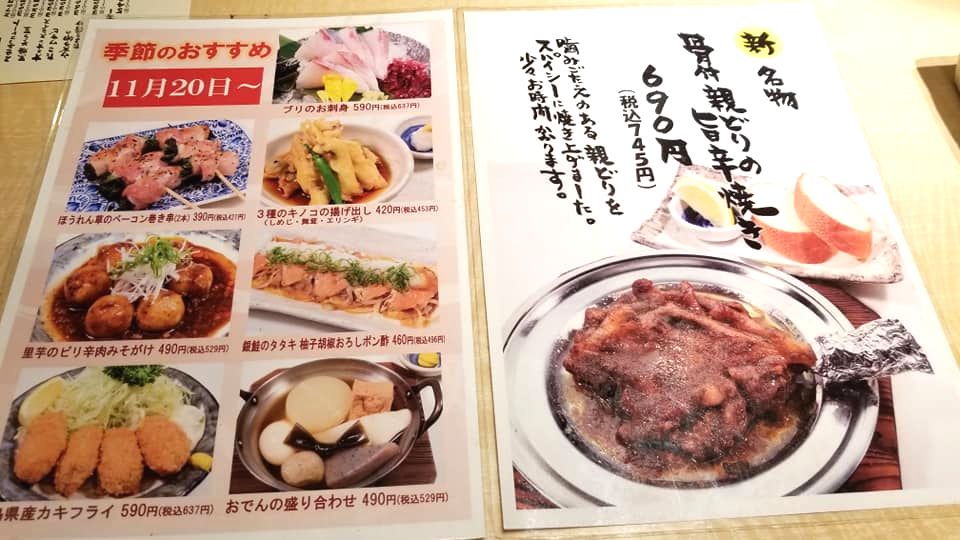 季節のおすすめ
11月20日～
ブリのお刺身 590円(税込637円)
ほうれん草のベーコン巻き串(2本) 390円(税込421円)
3種のキノコの揚げ出し 420円(税込453円)
(しめじ・舞茸・エリンギ)
里芋のピリ辛肉みそがけ 490円(税込529円)
銀鮭のタタキ 柚子胡椒おろしポン酢 460円(税込496円)
島県産カキフライ 590円(税込637円)
おでんの盛り合わせ 490円(税込529円)
新名物
骨付親どりの
旨辛焼き
690円
(税込745円)
歯ごたえのある親どりを
スパイシーに焼き上げました。
少々お時間かかります。